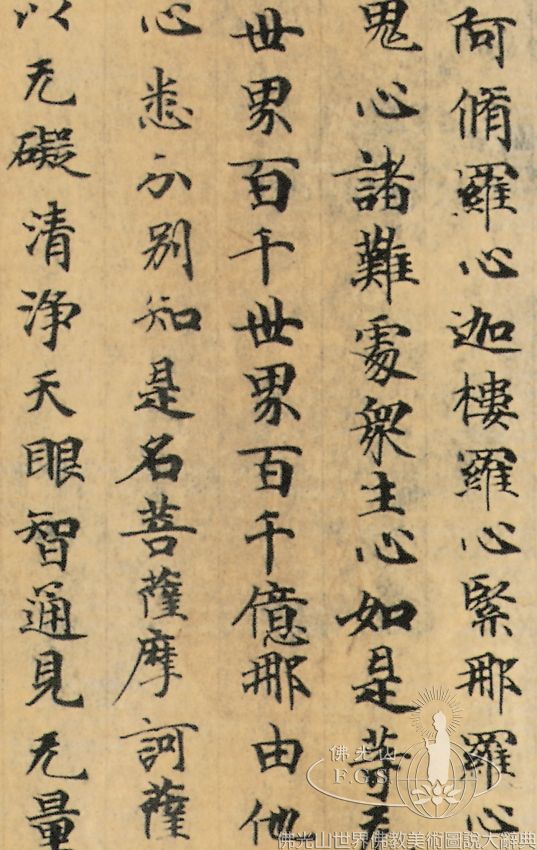 阿脩羅心迦樓羅心緊那羅心
鬼心諸難處衆生心如是等
世界百千世界百千億那由他
心悉分別知是名菩薩摩訶薩
以无礙清淨天眼智通見无量
佛光山
F.G.S
佛光山世界佛教美術圖說大辭典